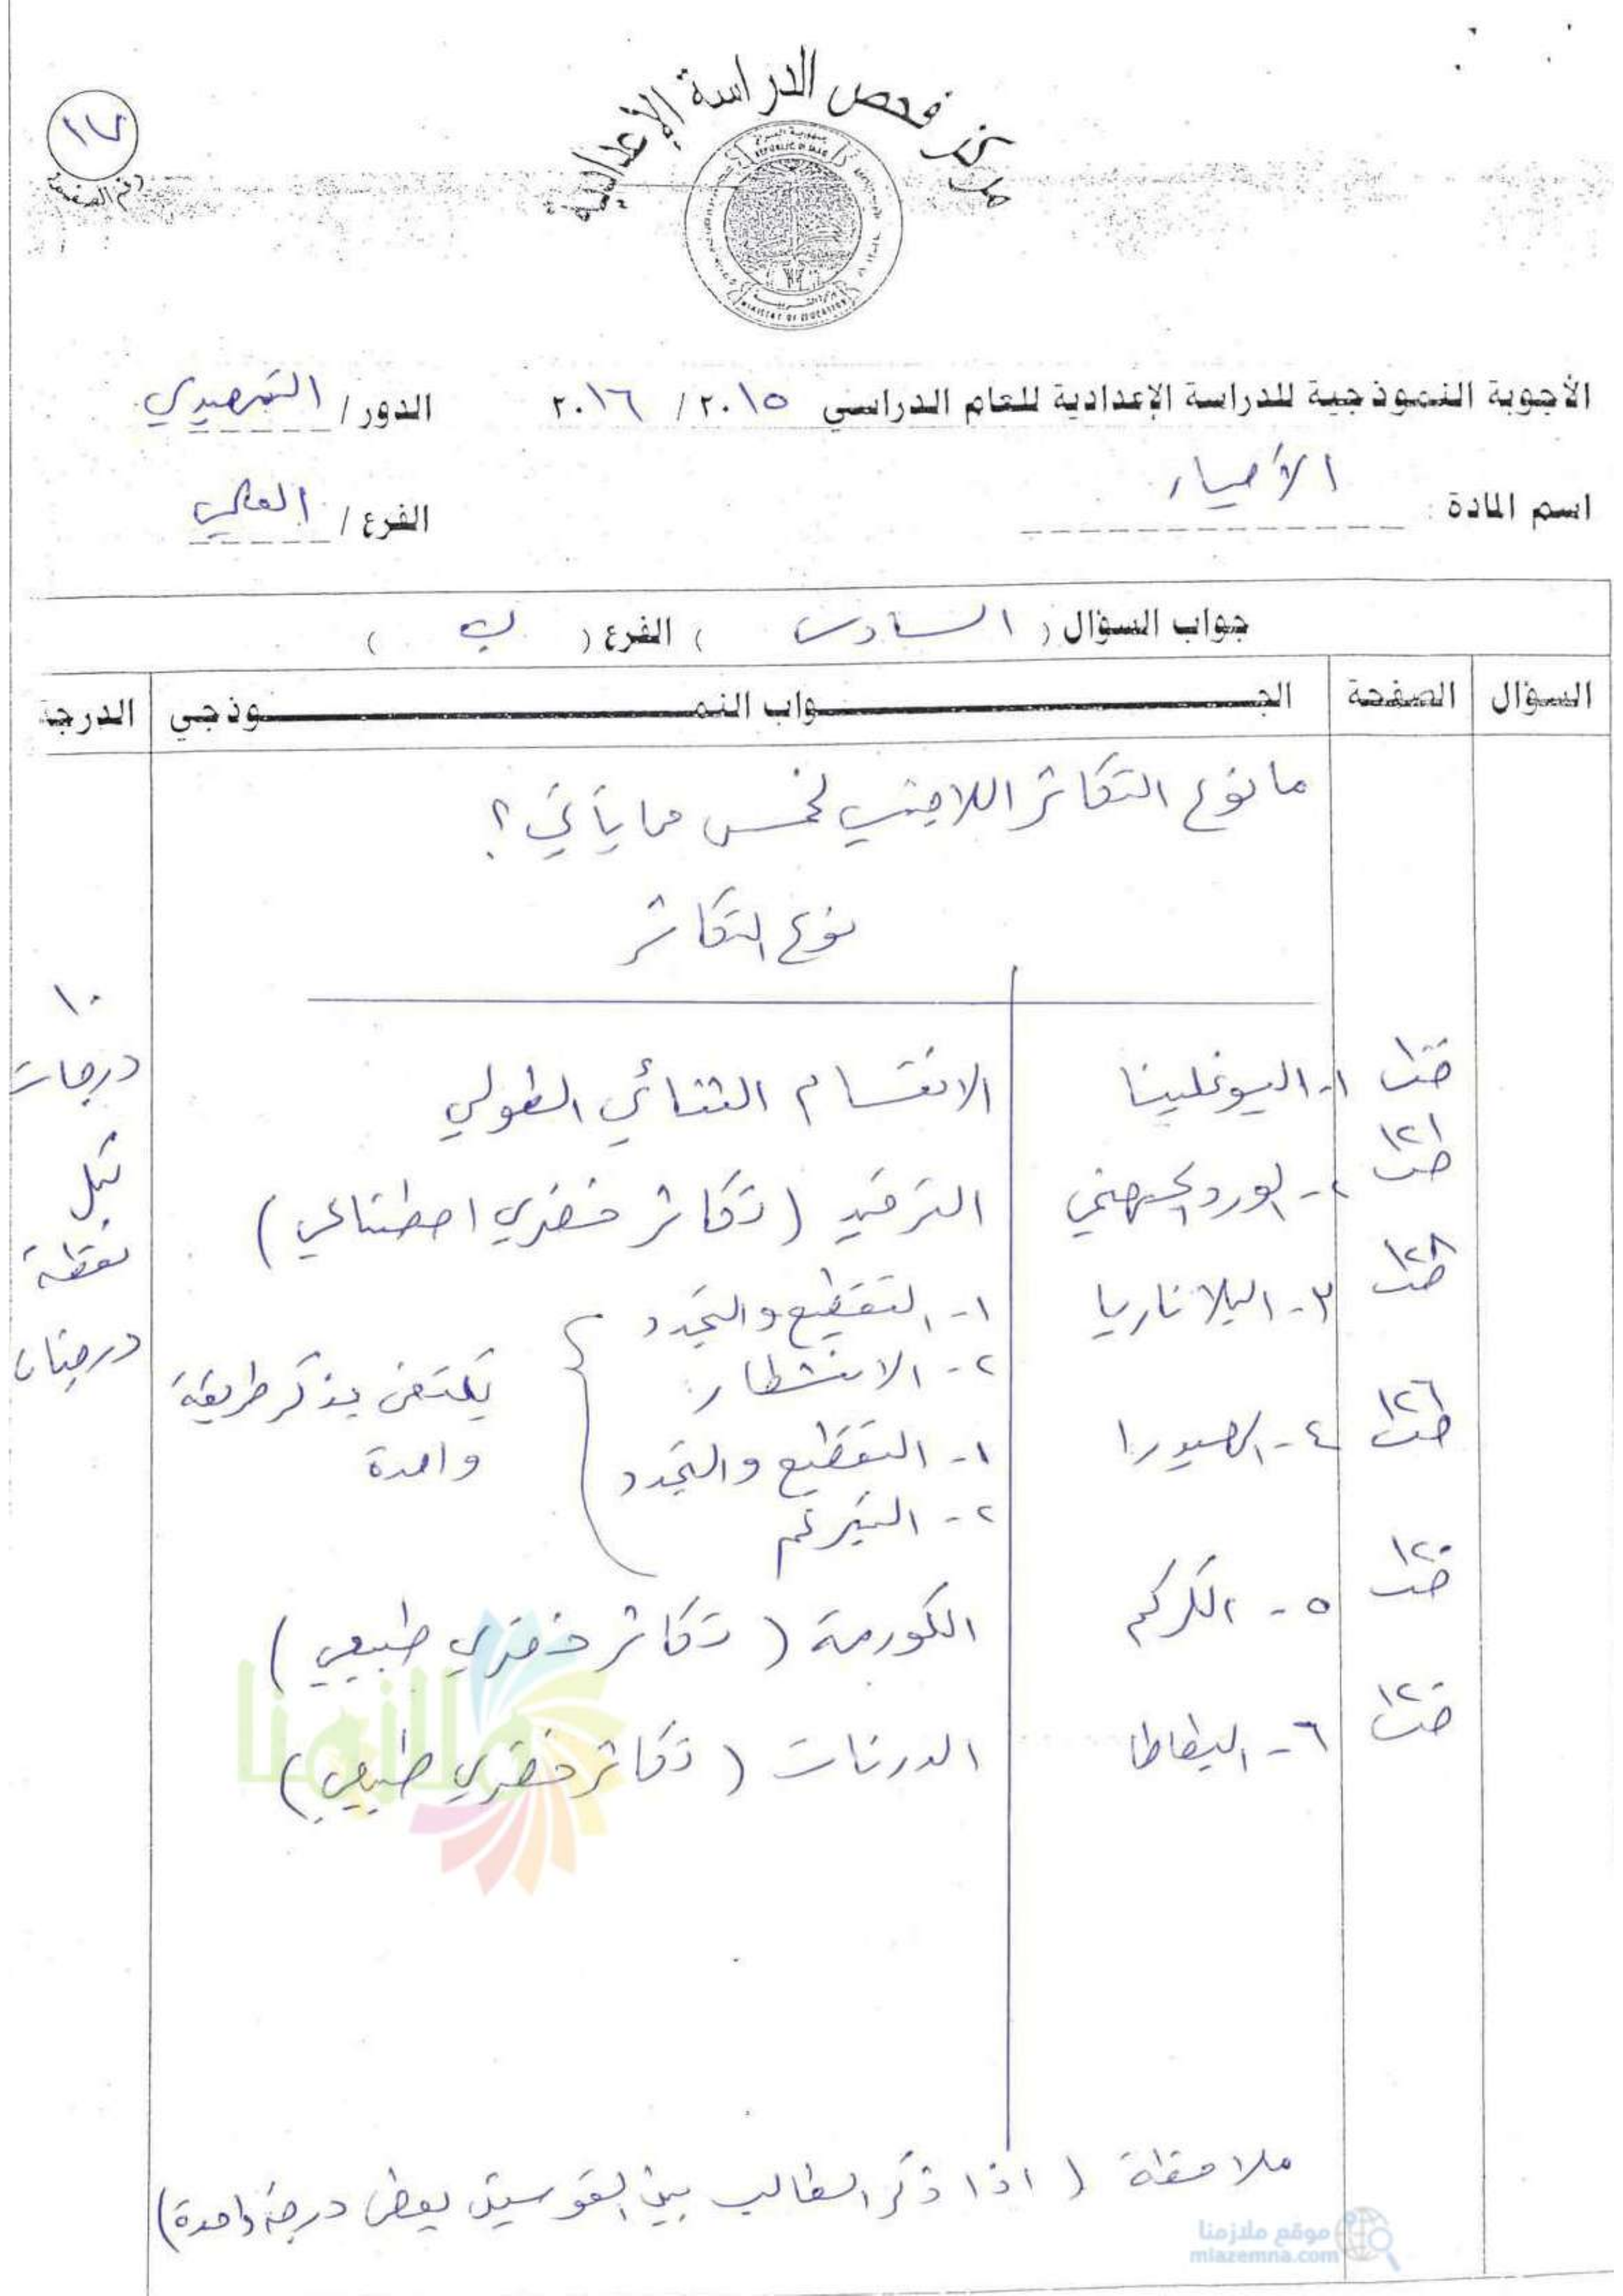 مركز فحص الدراسة الإعدادية
١٧
رقم الصفحة
REPUBLIC OF IRAQ
MINISTRY OF EDUCATION
الأجوبة النموذجية للدراسة الإعدادية للعام الدراسي ٢٠١٥ / ٢٠١٦ الدور / التمهيدي
اسم المادة : الأحياء الفرع / العلمي
جواب السؤال ( السادس ) الفرع ( ب )
السؤال الصفحة الجـــواب النمـــوذجي الدرجة
ما نوع التكاثر اللاجنسي لخمس مما يأتي ؟
نوع التكاثر
١٠ درجات لكل نقطة درجتان
١- اليوغلينا الانقسام الثنائي الطولي
ص١٢١ ٢- الورد الجهنمي الترقيد ( تكاثر خضري اصطناعي )
ص١٢٨ ٣- البلاناريا ١- التقطيع والتجدد
٢- الانشطار
يكتفى بذكر طريقة واحدة
ص١٢٦ ٤- الهيدرا ١- التقطيع والتجدد
٢- التبرعم
ص١٢٠ ٥- الكركم الكورمة ( تكاثر خضري طبيعي )
ص١٢٠ ٦- البطاطا الدرنات ( تكاثر خضري طبيعي )
ملاحظة ( اذا ذكر الطالب بين القوسين يعطى درجة واحدة )
ملازمنا
موقع ملازمنا
mlazemna.com